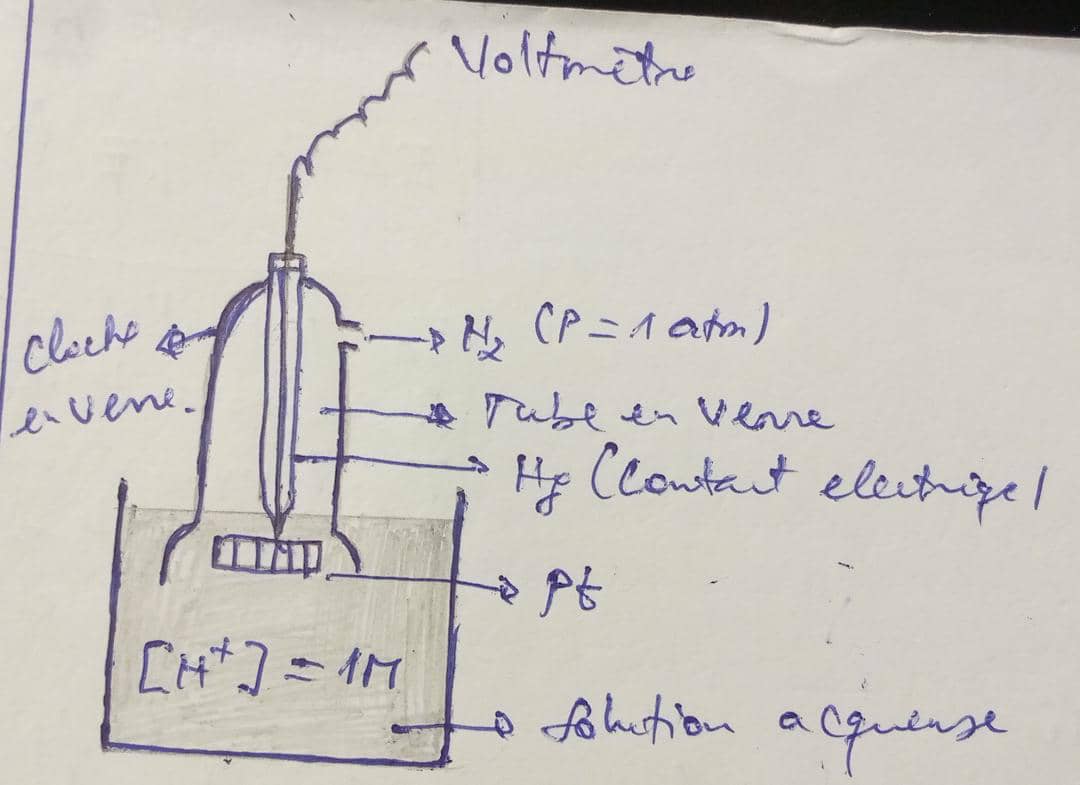 Voltmètre
Cloche
en verre.
H₂ (P = 1 atm)
Tube en verre
Hg (Contact electrique)
Pt
[H⁺] = 1M
Solution acqueuse